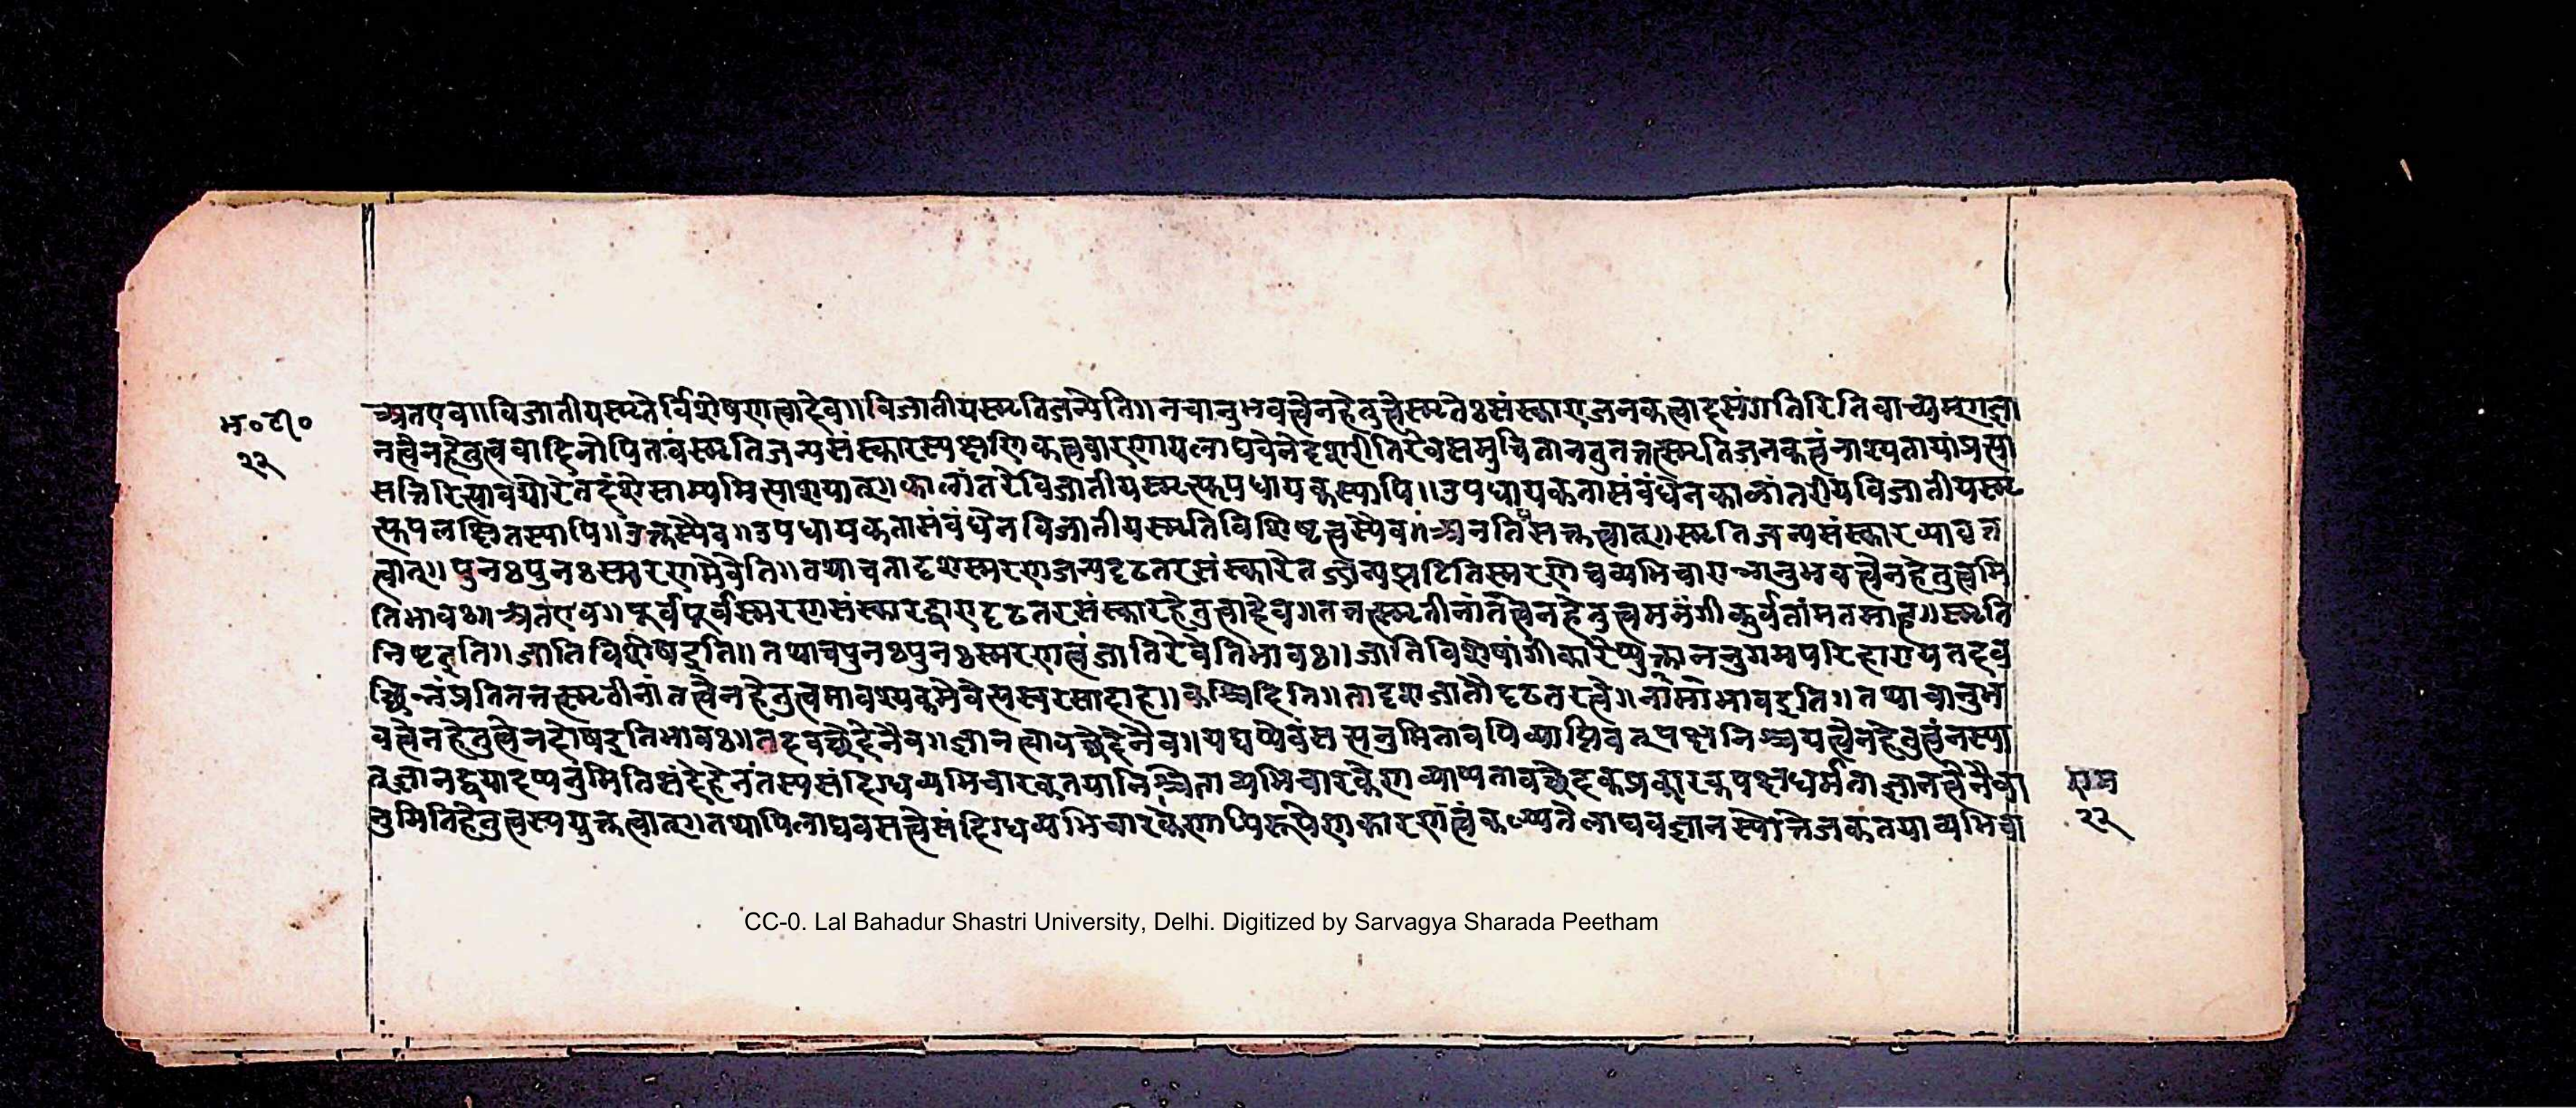 भ॰टी॰
२२
अतएव॥विजातीयस्मृतेर्विशेषणत्वादेव॥विजातीयस्मृतिजन्येति॥नचानुभवत्वेनहेतुत्वेस्मृतेःसंस्काराजनकत्वादसंगतिरितिवाच्यम्
नत्वेनहेतुत्ववादिनोपि स्मृतिजन्यसंस्कारस्य लाघवेनेदृशरीतिरेवसमुचितानतुतत्तत्स्मृतिजनकत्वंनाश्यतायांप्रत्या
सत्तिरित्यावयोरेतदंशेसाम्यमित्याशयात्॥कालांतरेविजातीयस्मृत्युपधायकस्यापि॥उपधायकतासंबंधेनकालांतरीयविजातीयस्मृ
त्युपलक्षितस्यापि॥उक्तस्यैव॥उपधायकतासंबंधेनविजातीयस्मृतिविशिष्टत्वस्यैव॥अनतिसक्तत्वात्॥स्मृतिजन्यसंस्कारव्यावृत्त
त्वात्॥पुनःपुनःस्मरणमेवेति॥तथाचतादृशस्मरणजन्यदृढतरसंस्कारे झटितिस्मरणेचव्यभिचाराअनुभवत्वेनहेतुत्वमि
तिभावः॥अतएव॥पूर्वपूर्वस्मरणसंस्कारद्वारादृढतरसंस्कारहेतुत्वादेव॥तत्तत्स्मृतीनांतत्वेनहेतुत्वमनंगीकुर्वतांमतमाह॥स्मृति
निष्टइति॥जातिविशेषइति॥तथाचपुनःपुनःस्मरणत्वंजातिरेवेतिभावः॥जातिविशेषांगीकारेप्युक्ताननुगमपरिहारायतदव
च्छिन्नंप्रतितत्तत्स्मृतीनांतत्वेनहेतुत्वमावश्यकमेवेत्यस्वरसादाह॥कश्चिदिति॥तादृशजातौदृढतरत्वे॥ इति॥तथाचानुभ
वत्वेनहेतुत्वेनदोषइतिभावः॥तदवच्छेदेनैव॥ज्ञानत्वावच्छेदेनैव॥यद्यप्येवं व्याप्तिवत्पक्षनिश्चयत्वेनहेतुत्वंनस्या
त्ज्ञानद्वयादप्यनुमितिसंदेहेनतस्यसंदिग्धव्यभिचारकतयानिश्चिताव्यभिचारकेणव्याप्यतावच्छेदकप्रकारकपक्षधर्मताज्ञानत्वेनैवा
नुमितिहेतुत्वस्ययुक्तत्वात्॥तथापिलाघवसत्वेसंदिग्धव्यभिचारकेणापिरूपेणकारणत्वंकल्प्यतेलाघवज्ञानस्योत्तेजकतयाव्यभिचा
राम
२२
CC-0. Lal Bahadur Shastri University, Delhi. Digitized by Sarvagya Sharada Peetham